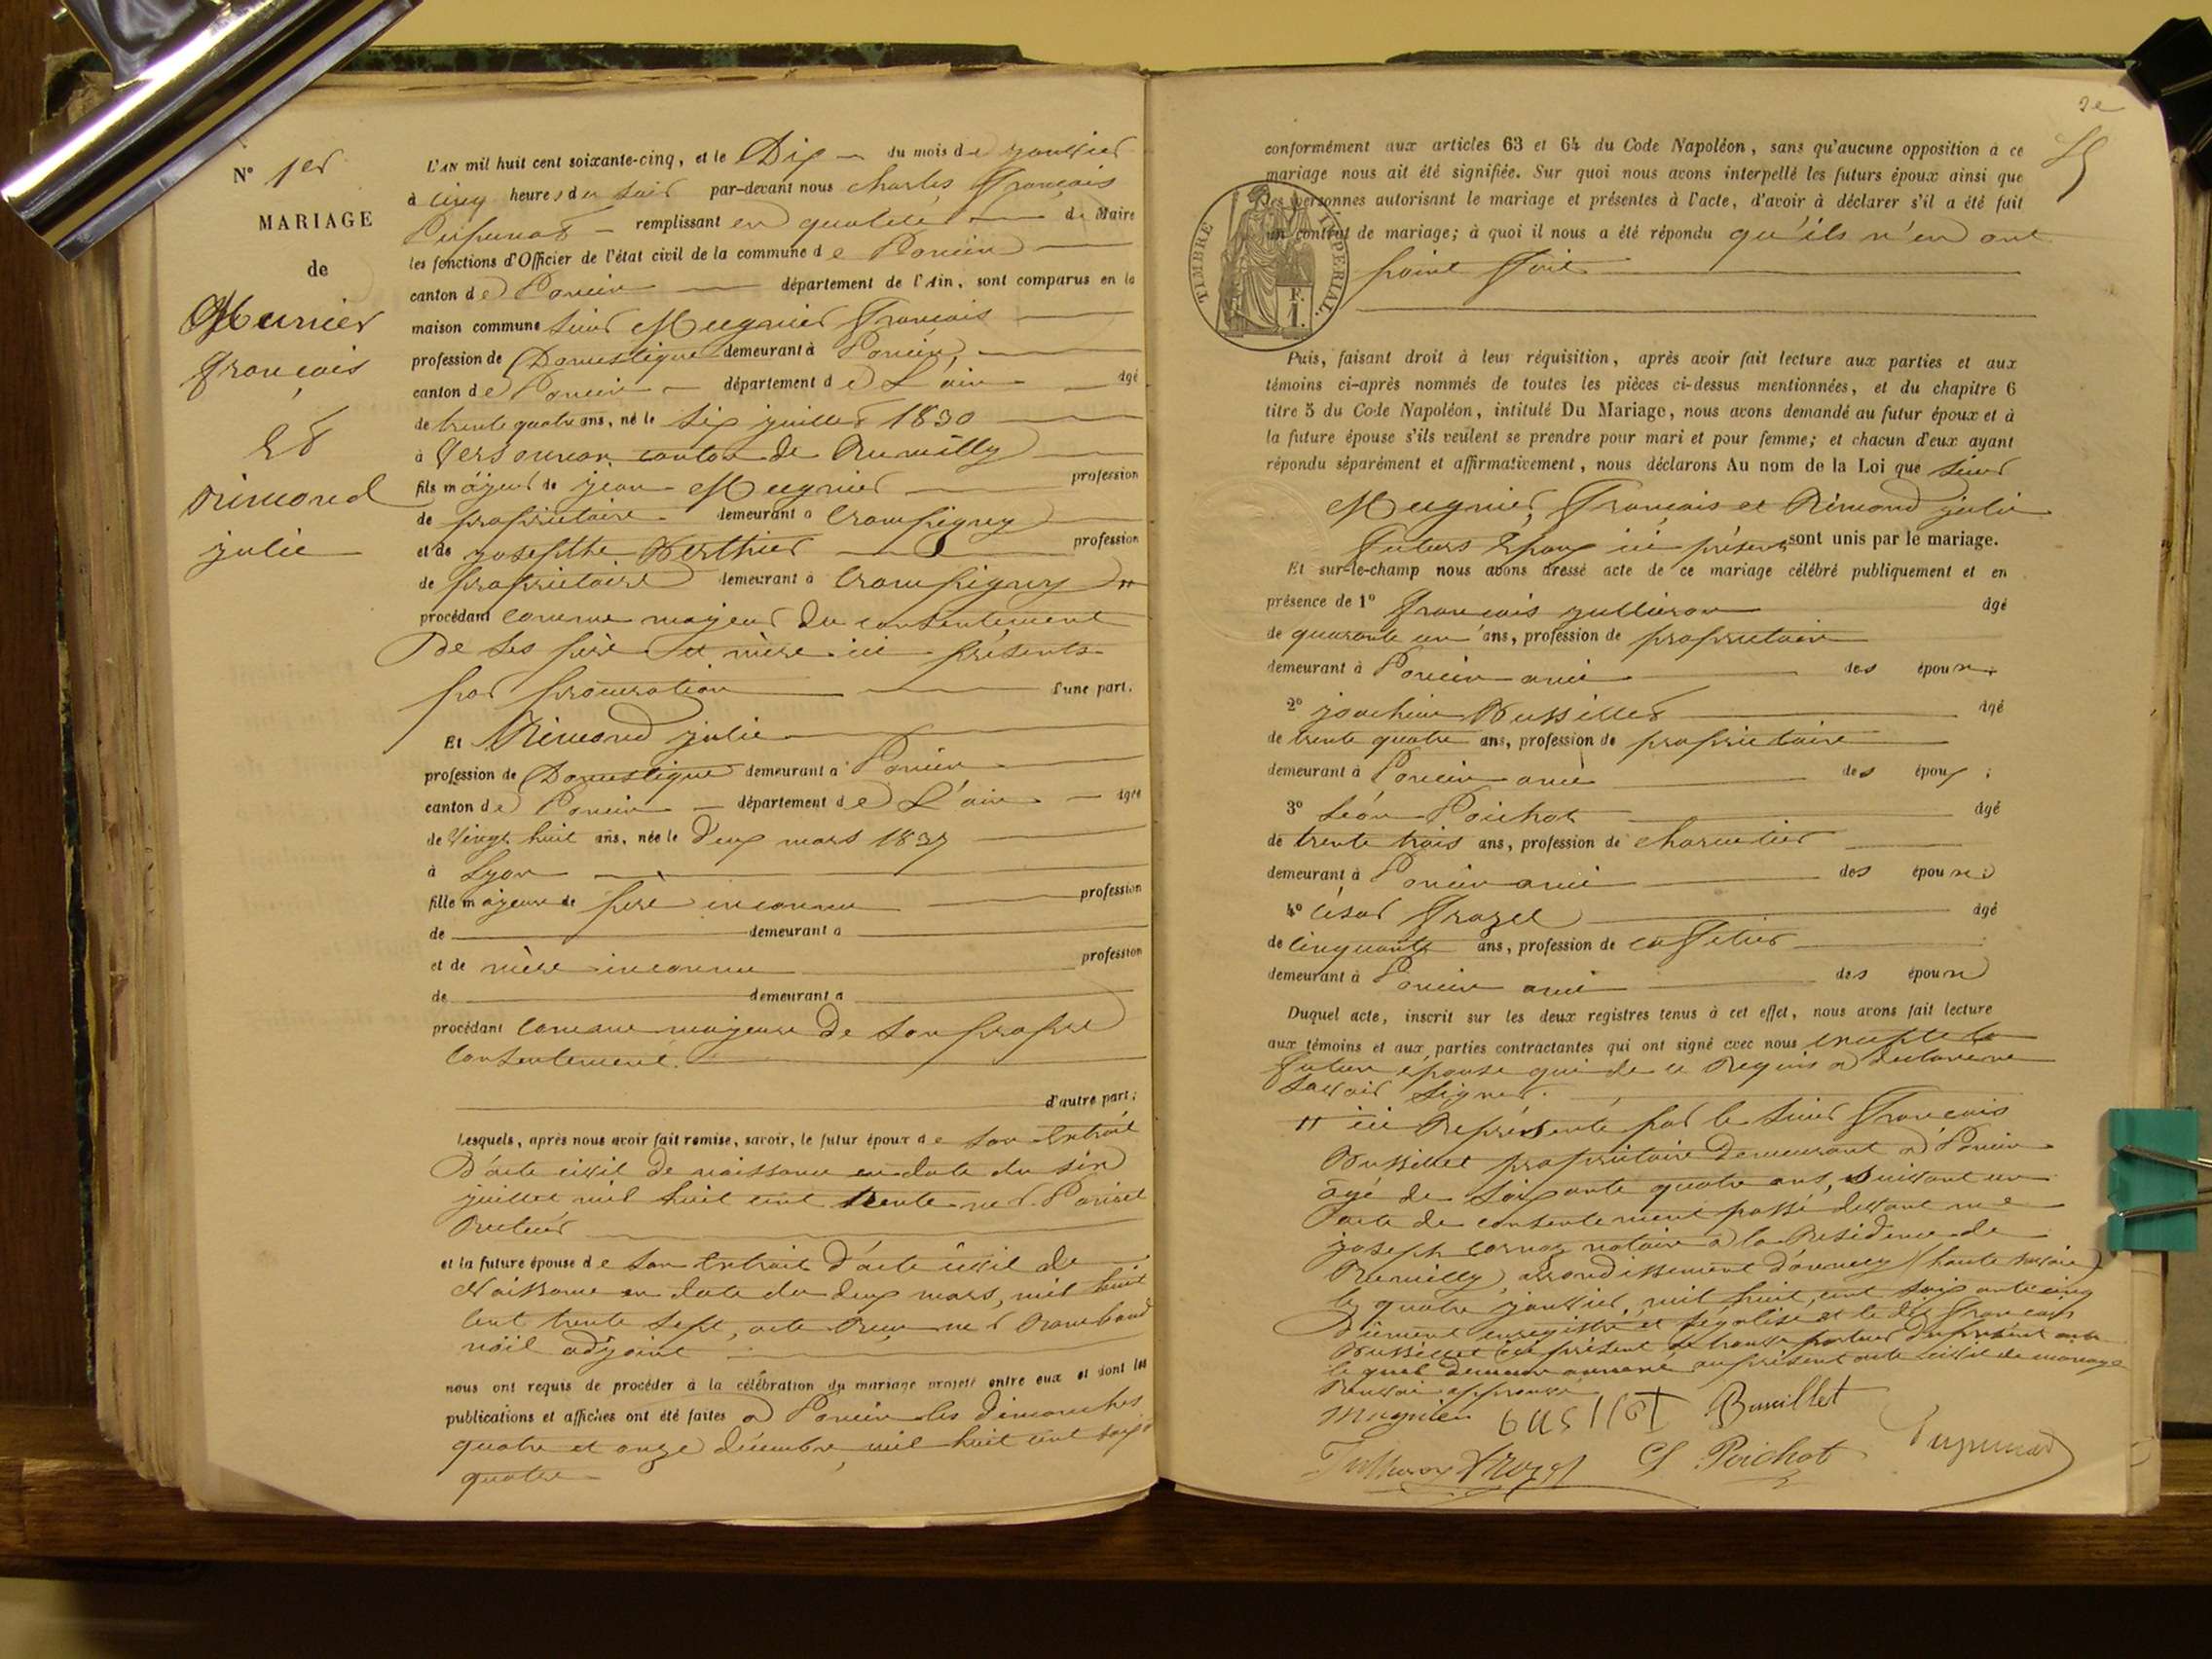 N° 1er
MARIAGE
de
Munier
françois
et
rimond
julie
L'AN mil huit cent soixante-cinq, et le Dix du mois de janvier
à cinq heures du soir par-devant nous charles François
remplissant en qualité de Maire
les fonctions d'Officier de l'état civil de la commune de Poncin
canton de Poncin département de l'Ain, sont comparus en la
maison commune sieur Mugnier François
profession de Domestique demeurant à Poncin
canton de Poncin département de L'ain âgé
de trente quatre ans, né le six juillet 1830
à Versonnex canton de Rumilly
fils majeur de jean Mugnier profession
de propriétaire demeurant à Crempigny
et de josephte Berthier profession
de propriétaire demeurant à Crempigny
procédant comme majeur du consentement
De ses père et mère ici présents
par procuration d'une part.
Et Rimond julie
profession de Domestique demeurant à Poncin
canton de Poncin département de L'ain âgée
de vingt huit ans, née le deux mars 1837
à Lyon
fille majeure de père inconnu profession
de demeurant à
et de mère inconnue profession
de demeurant à
procédant comme majeure de son propre
consentement.
d'autre part;
Lesquels, après nous avoir fait remise, savoir, le futur époux de son Extrait
D'acte civil de naissance en date du six
juillet mil huit cent trente
Recteur
et la future épouse de son Extrait d'acte civil de
Naissance en date du deux mars, mil huit
cent trente sept, acte Reçu
adjoint
nous ont requis de procéder à la célébration du mariage projeté entre eux et dont les
publications et affiches ont été faites à Poncin les dimanches
quatre et onze décembre, mil huit cent soixte
quatre
2e
conformément aux articles 63 et 64 du Code Napoléon, sans qu'aucune opposition à ce
mariage nous ait été signifiée. Sur quoi nous avons interpellé les futurs époux ainsi que
les personnes autorisant le mariage et présentes à l'acte, d'avoir à déclarer s'il a été fait
un contrat de mariage; à quoi il nous a été répondu qu'ils n'en ont
point fait
TIMBRE IMPÉRIAL
1 F.
Puis, faisant droit à leur réquisition, après avoir fait lecture aux parties et aux
témoins ci-après nommés de toutes les pièces ci-dessus mentionnées, et du chapitre 6
titre 5 du Code Napoléon, intitulé Du Mariage, nous avons demandé au futur époux et à
la future épouse s'ils veulent se prendre pour mari et pour femme; et chacun d'eux ayant
répondu séparément et affirmativement, nous déclarons Au nom de la Loi que sieur
Mugnier, François et Rimond julie
futurs Epoux ici présents sont unis par le mariage.
Et sur-le-champ nous avons dressé acte de ce mariage célébré publiquement et en
présence de 1° François jullieron âgé
de quarante un ans, profession de propriétaire
demeurant à Poncin ami des époux;
2° joachim Bussillet âgé
de trente quatre ans, profession de propriétaire
demeurant à Poncin ami des époux;
3° Léon Poichot âgé
de trente trois ans, profession de charcutier
demeurant à Poncin ami des époux;
4° César Frozel âgé
de cinquante ans, profession de cafetier
demeurant à Poncin ami des époux
Duquel acte, inscrit sur les deux registres tenus à cet effet, nous avons fait lecture
aux témoins et aux parties contractantes qui ont signé avec nous excepté la
future épouse qui de ce Requis a déclaré ne
savoir signer.
ici Représenté par le sieur François
Bussillet propriétaire Demeurant à Poncin
âgé de soixante quatre ans, suivant un
acte de consentement passé devant me
joseph notaire à la Résidence de
Rumilly, arrondissement d'annecy (haute savoie)
le quatre janvier, mil huit, cent soixante cinq
Dûment enregistré et légalisé et le dit François
Bussillet ici présent se trouve porteur du présent acte
le quel demeure annexé au présent acte civil de mariage
Renvoi approuvé
Mugnier Bussillet
Frozel Poichot